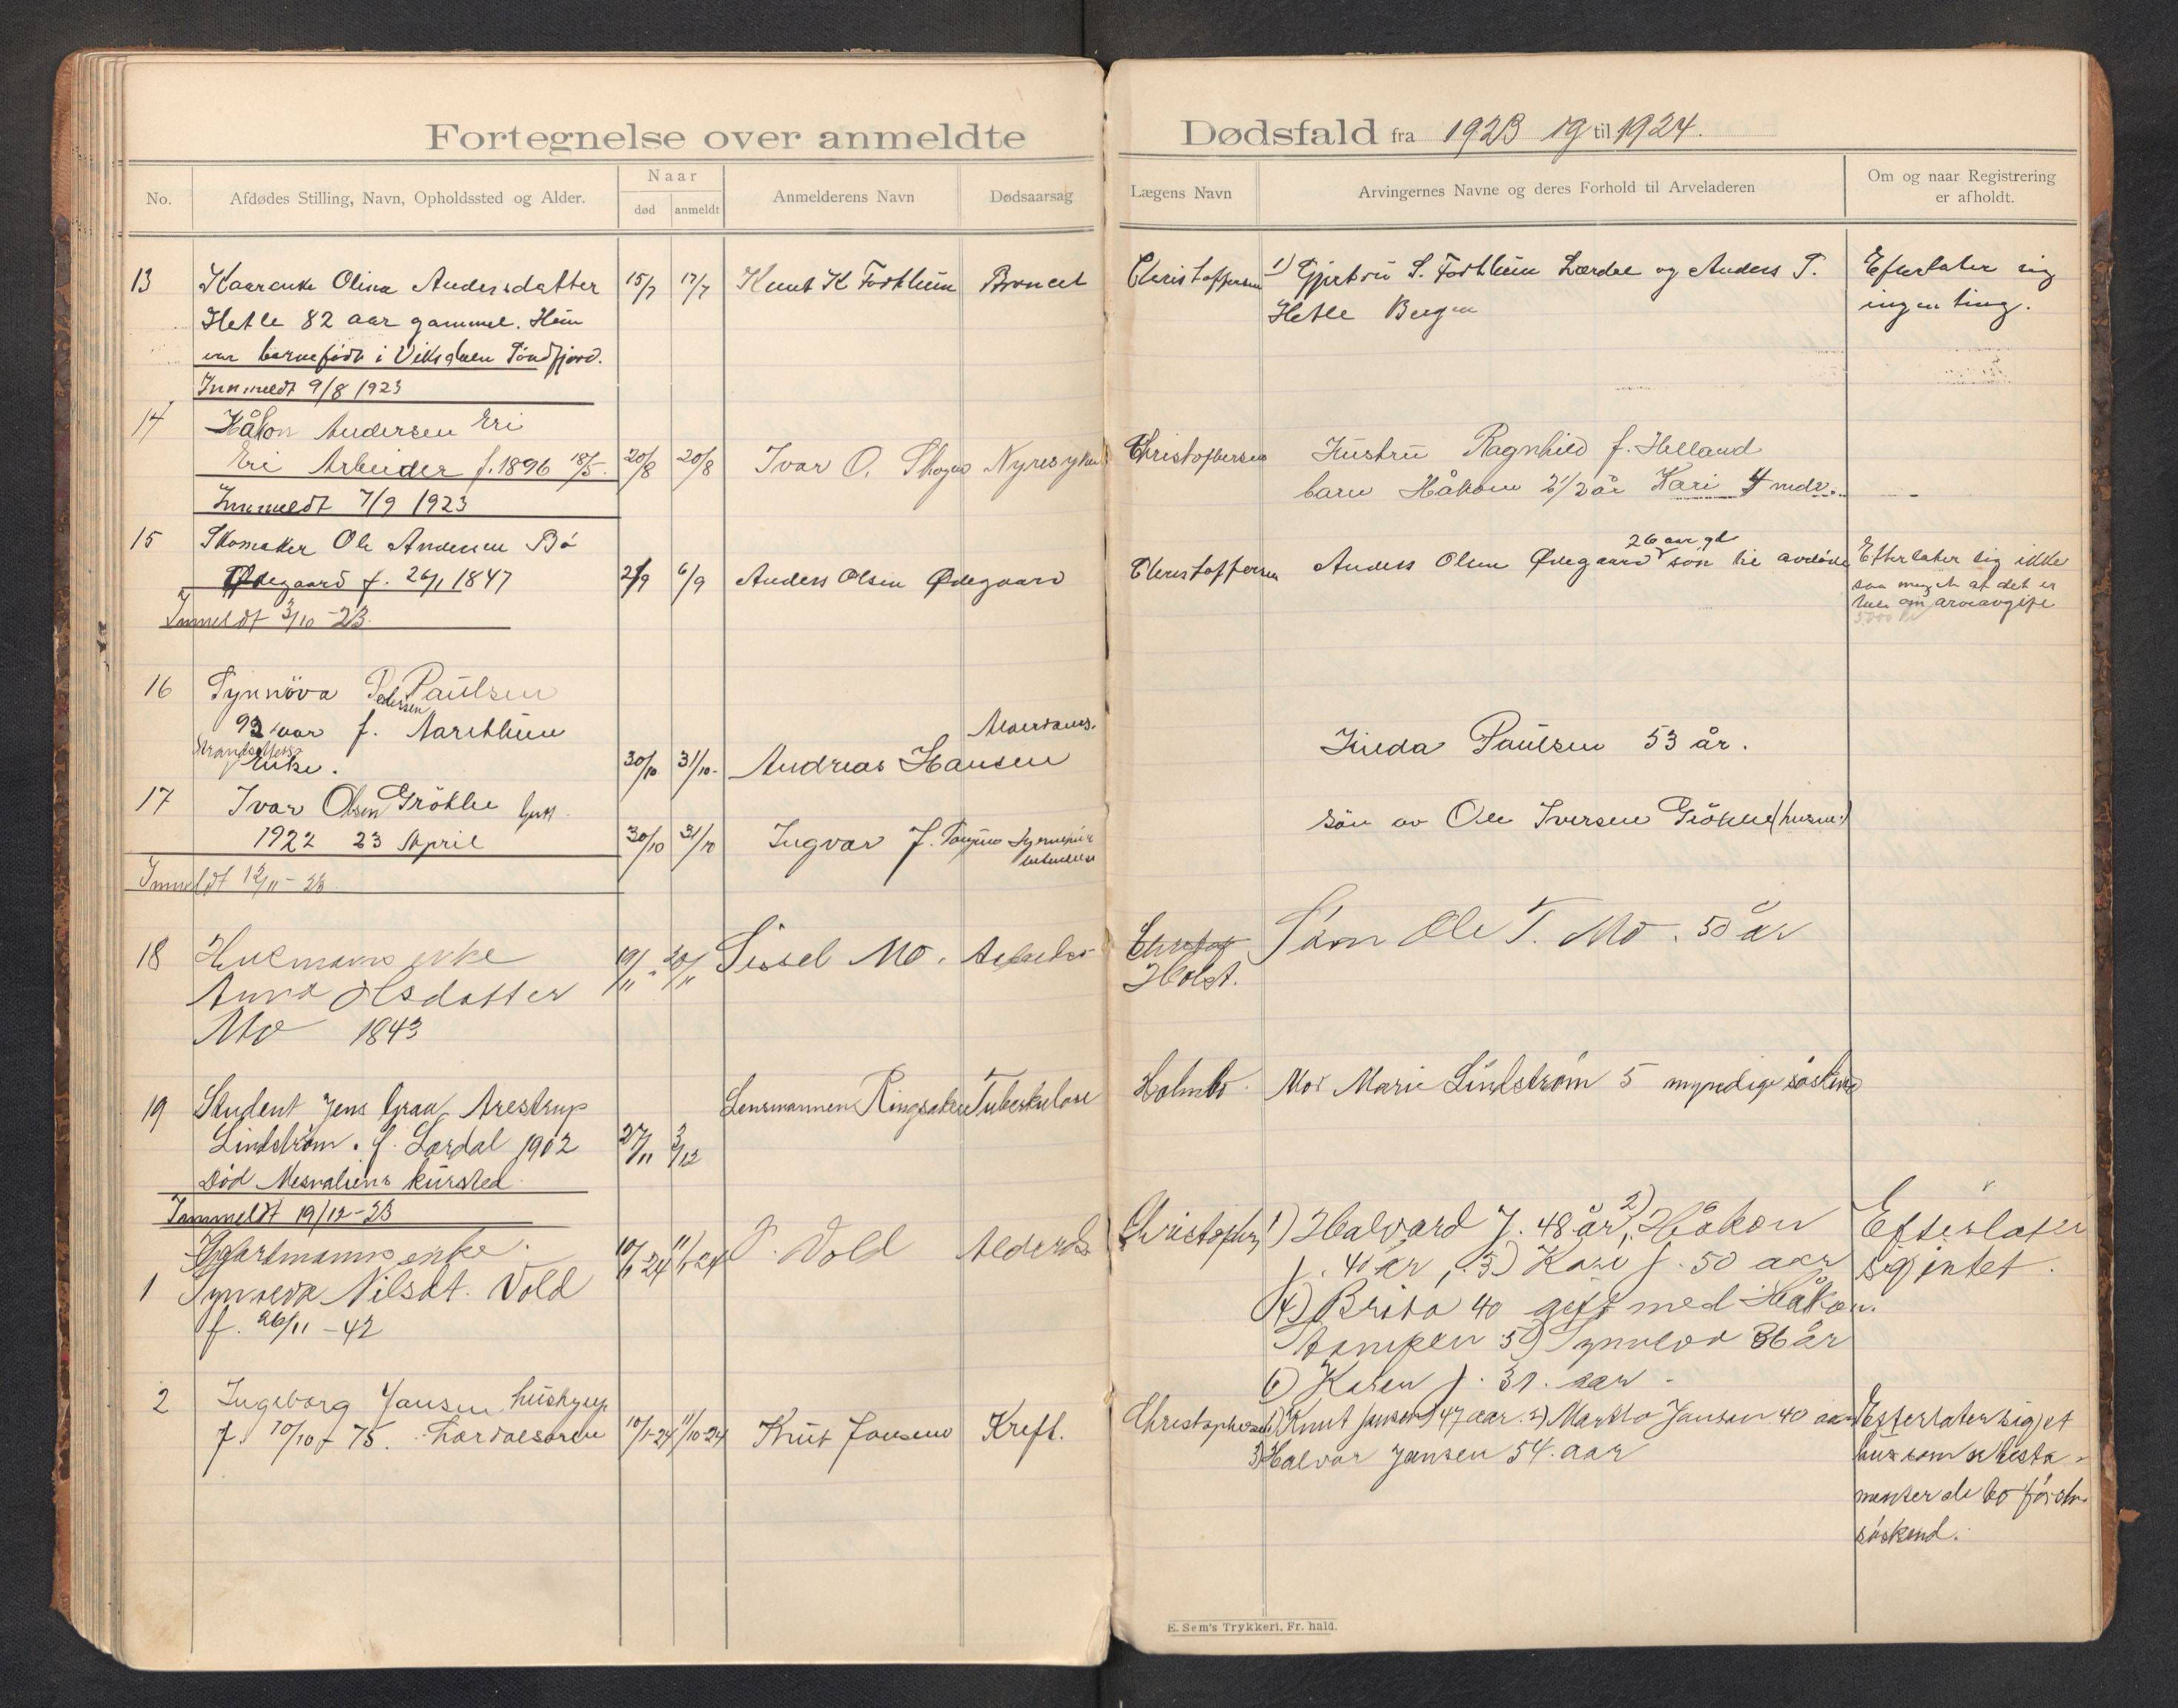 Fortegnelse over anmeldte Dødsfald fra 1923 19 til 1924.
No.
Afdødes Stilling, Navn, Opholdssted og Alder.
Naar
død
anmeldt
Anmelderens Navn
Dødsaarsag
Lægens Navn
Arvingernes Navne og deres Forhold til Arveladeren
Om og naar Registrering
er afholdt.
13 Kaarenke Olina Andersdatter 15/7 17/7 Knut K Forthun
Hetle 82 aar gammel. Hun
var barnefödt i Viksdalen Söndfjord.
Innmeldt 9/8 1923
Christoffersen 1) Gjertrü S. Forthun Lærdal og Anders T.
Hetle Bergen
Efterlater sig
ingen ting.
14 Håkon Andersen Eri
Eri Arbeider f. 1896 18/5. 20/8 20/8 Ivar O. Nyresyke
Innmeldt 7/9 1923
Christoffersen Hustru Ragnhild f. Helland
barn Håkon 2 1/2 år Kari 4 mdr.
15 Skomaker Ole Andersen Bö
Ødegaard f. 26/1 1847 6/9 Anders Olsen Ødegaard
Innmeldt 3/10 - 23.
Christoffersen Anders Olsen Ødegaard 26 aar gl sön til avdöde
Efterlater sig ikke
saa meget at det er
tale om arveavgift
5000 kr
16 Synnöva Pedersen Paulsen
92 aar f. Aarethun
Strandsitters
Enke. 30/10 31/10 Andreas Hansen Alderdoms.
Paulsen 53 år.
17 Ivar Olsen Grökle gutt
1922 23 April 30/10 31/10 Ingvar J.
Innmeldt 12/11 - 23
sön av Ole Iversen Grökle (husm.)
18 Husmanns enke 19/11 20/11 Sissel Mo.
Anna Olsdatter
Mo 1843
Holst.
Sönn Ole T. Mo. 50 år
19 Student Jens Graa Arestrup
Lindström. f. Lærdal 1902 27/11 3/12 Lensmannen Ringsaker Tuberkulose
död Mesnaliens kursted
Innmeldt 19/12 - 23
Holmbo. Mor Marie Lindström 5 myndige söskend
1 Gaardmanns enke.
Synneva Nilsdt. Vold
f. 26/11 - 42
10/1 24 11/1 24 Vold Alderds
Christophers 1) Halvard J. 48 år, 2) Håkon
J. 40 år, 3) Kari J. 50 aar
4) Brita 40 gift med Håkon
5) Synneva 36 år
6) Karen J. 31. aar
Efterlater
sig intet.
2 Ingeborg Jansen hushjelp
f. 10/10 - 75. Lærdalsören 10/1-24 11/10-24 Knut Jansen Kreft.
Christophersen 1) Knut Jansen 47 aar. 2) Martha Jansen 40 aar
3) Halvor Jansen 54. aar
Efterlater sig et
hus som
söskend.
E. Sem's Trykkeri, Fr. hald.